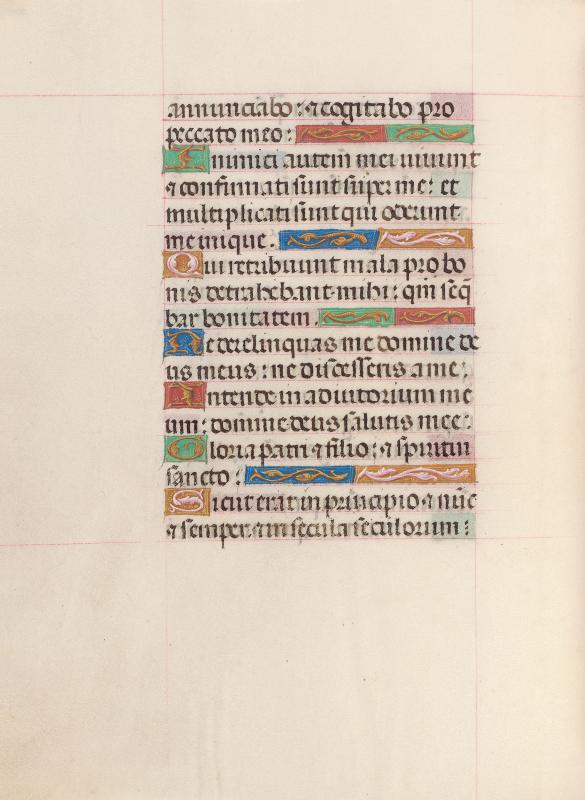 annunciabo : ⁊ cogitabo pro
peccato meo :
Inimici autem mei uiuunt
⁊ confirmati sunt super me : et
multiplicati sunt qui oderunt
me inique .
Qui retribuunt mala pro bo
nis detrahebant mihi : qm̄ seq̄
bar bonitatem .
Ne derelinquas me domine de
us meus : ne discesseris a me :
Intende in adiutorium me
um : domine deus salutis mee :
Gloria patri ⁊ filio : ⁊ spiritui
sancto :
Sicut erat in principio ⁊ nūc
⁊ semper : ⁊ in secula seculorum :